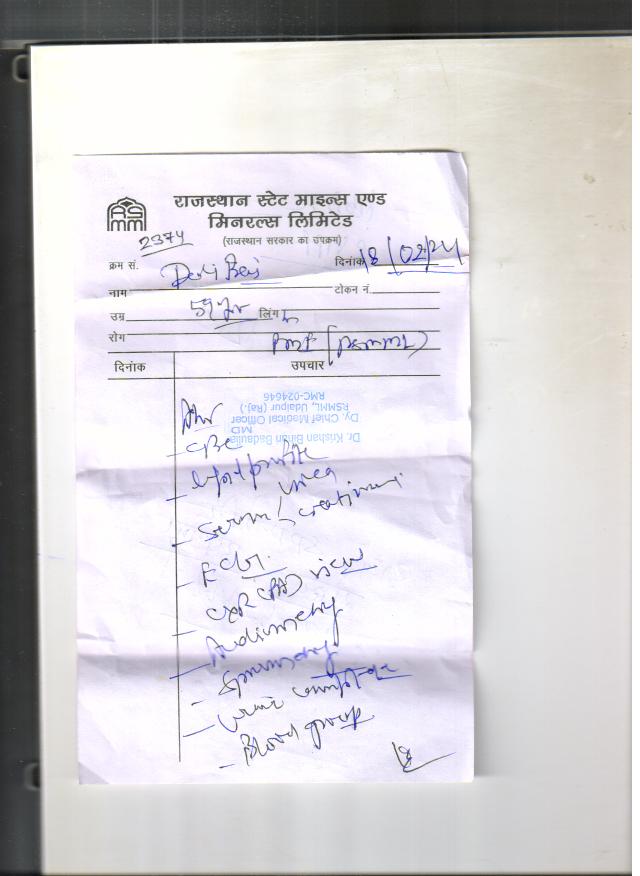 RSMM
राजस्थान स्टेट माइन्स एण्ड
मिनरल्स लिमिटेड
(राजस्थान सरकार का उपक्रम)
2374
क्रम सं. दिनांक 18/02/24
नाम टोकन नं.
उम्र 59 yr लिंग
रोग
(RSMML)
दिनांक उपचार
Dr. Krishan Bihari Badaulia
MD
Dy. Chief Medical Officer
RSMML, Udaipur (Raj.)
RMC-024646
Adv
- CBC
- Lipid profile
- Serum urea / creatinine
- ECG
- CXR (PA) view
- Audiometry
- Spirometry
- Urine complete
- Blood group